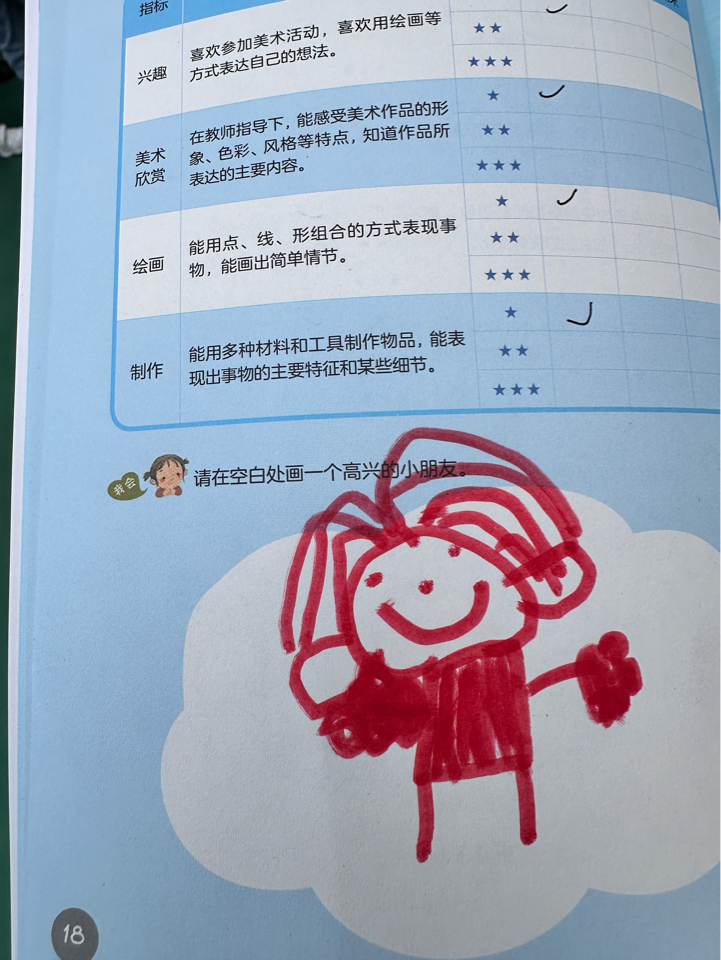 指标
★★
兴趣
喜欢参加美术活动，喜欢用绘画等
方式表达自己的想法。
★★★
★
美术
欣赏
在教师指导下，能感受美术作品的形
象、色彩、风格等特点，知道作品所
表达的主要内容。
★★
★★★
★
绘画
能用点、线、形组合的方式表现事
物，能画出简单情节。
★★
★★★
★
制作
能用多种材料和工具制作物品，能表
现出事物的主要特征和某些细节。
★★
★★★
我会
请在空白处画一个高兴的小朋友。
18